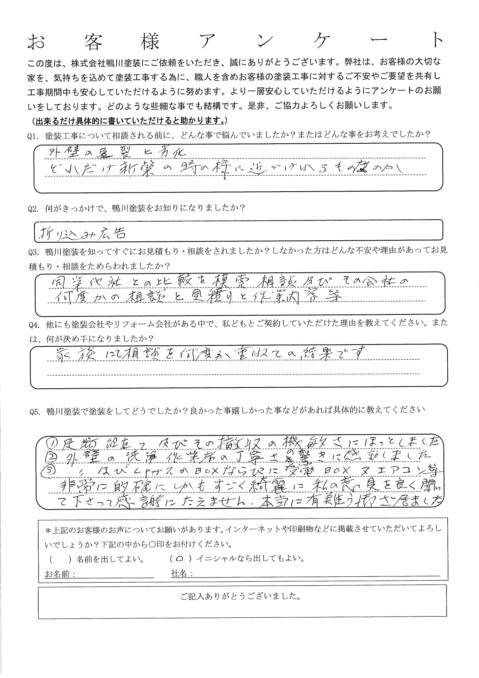 お客様アンケート
この度は、株式会社鴨川塗装にご依頼をいただき、誠にありがとうございます。弊社は、お客様の大切な
家を、気持ちを込めて塗装工事する為に、職人を含めお客様の塗装工事に対するご不安やご要望を共有し
工事期間中も安心していただけるように努めます。より一層安心していただけるようにアンケートのお願
いをしております。どのような些細な事でも結構です。是非、ご協力よろしくお願いします。
（出来るだけ具体的に書いていただけると助かります。）
Q1. 塗装工事について相談される前に、どんな事で悩んでいましたか？またはどんな事をお考えでしたか？
外壁の 劣化
どれだけ新築の時の様に近づけれるものなのか
Q2. 何がきっかけで、鴨川塗装をお知りになりましたか？
折り込み広告
Q3. 鴨川塗装を知ってすぐにお見積もり・相談をされましたか？しなかった方はどんな不安や理由があってお見
積もり・相談をためらわれましたか？
同業他社との比較を模索 相談及びその会社の
何度かの相談と見積りと作業内容等
Q4. 他にも塗装会社やリフォーム会社がある中で、私どもとご契約していただけた理由を教えてください。また
は、何が決め手になりましたか？
家族にて相談を何度か重ねての結果です
Q5. 鴨川塗装で塗装をしてどうでしたか？良かった事嬉しかった事などがあれば具体的に教えてください
① 足場組立て及びその撤収の機敏さにほっとしました
② 外壁の洗浄作業者の丁寧さ 驚きに感動しました
③ 及びLPガスのBOXならびに BOX又エアコン等
非常に的確にしかもすごく綺麗に私の意見を良く聞い
て下さって感謝にたえません、本当に有難う御ざ居ました
＊上記のお客様のお声についてお願いがあります。インターネットや印刷物などに掲載させていただいてよろし
いでしょうか？下記の中から〇印をお付けください。
（　）名前を出してよい。　（〇）イニシャルなら出してもよい。
お名前：　社名：
ご記入ありがとうございました。